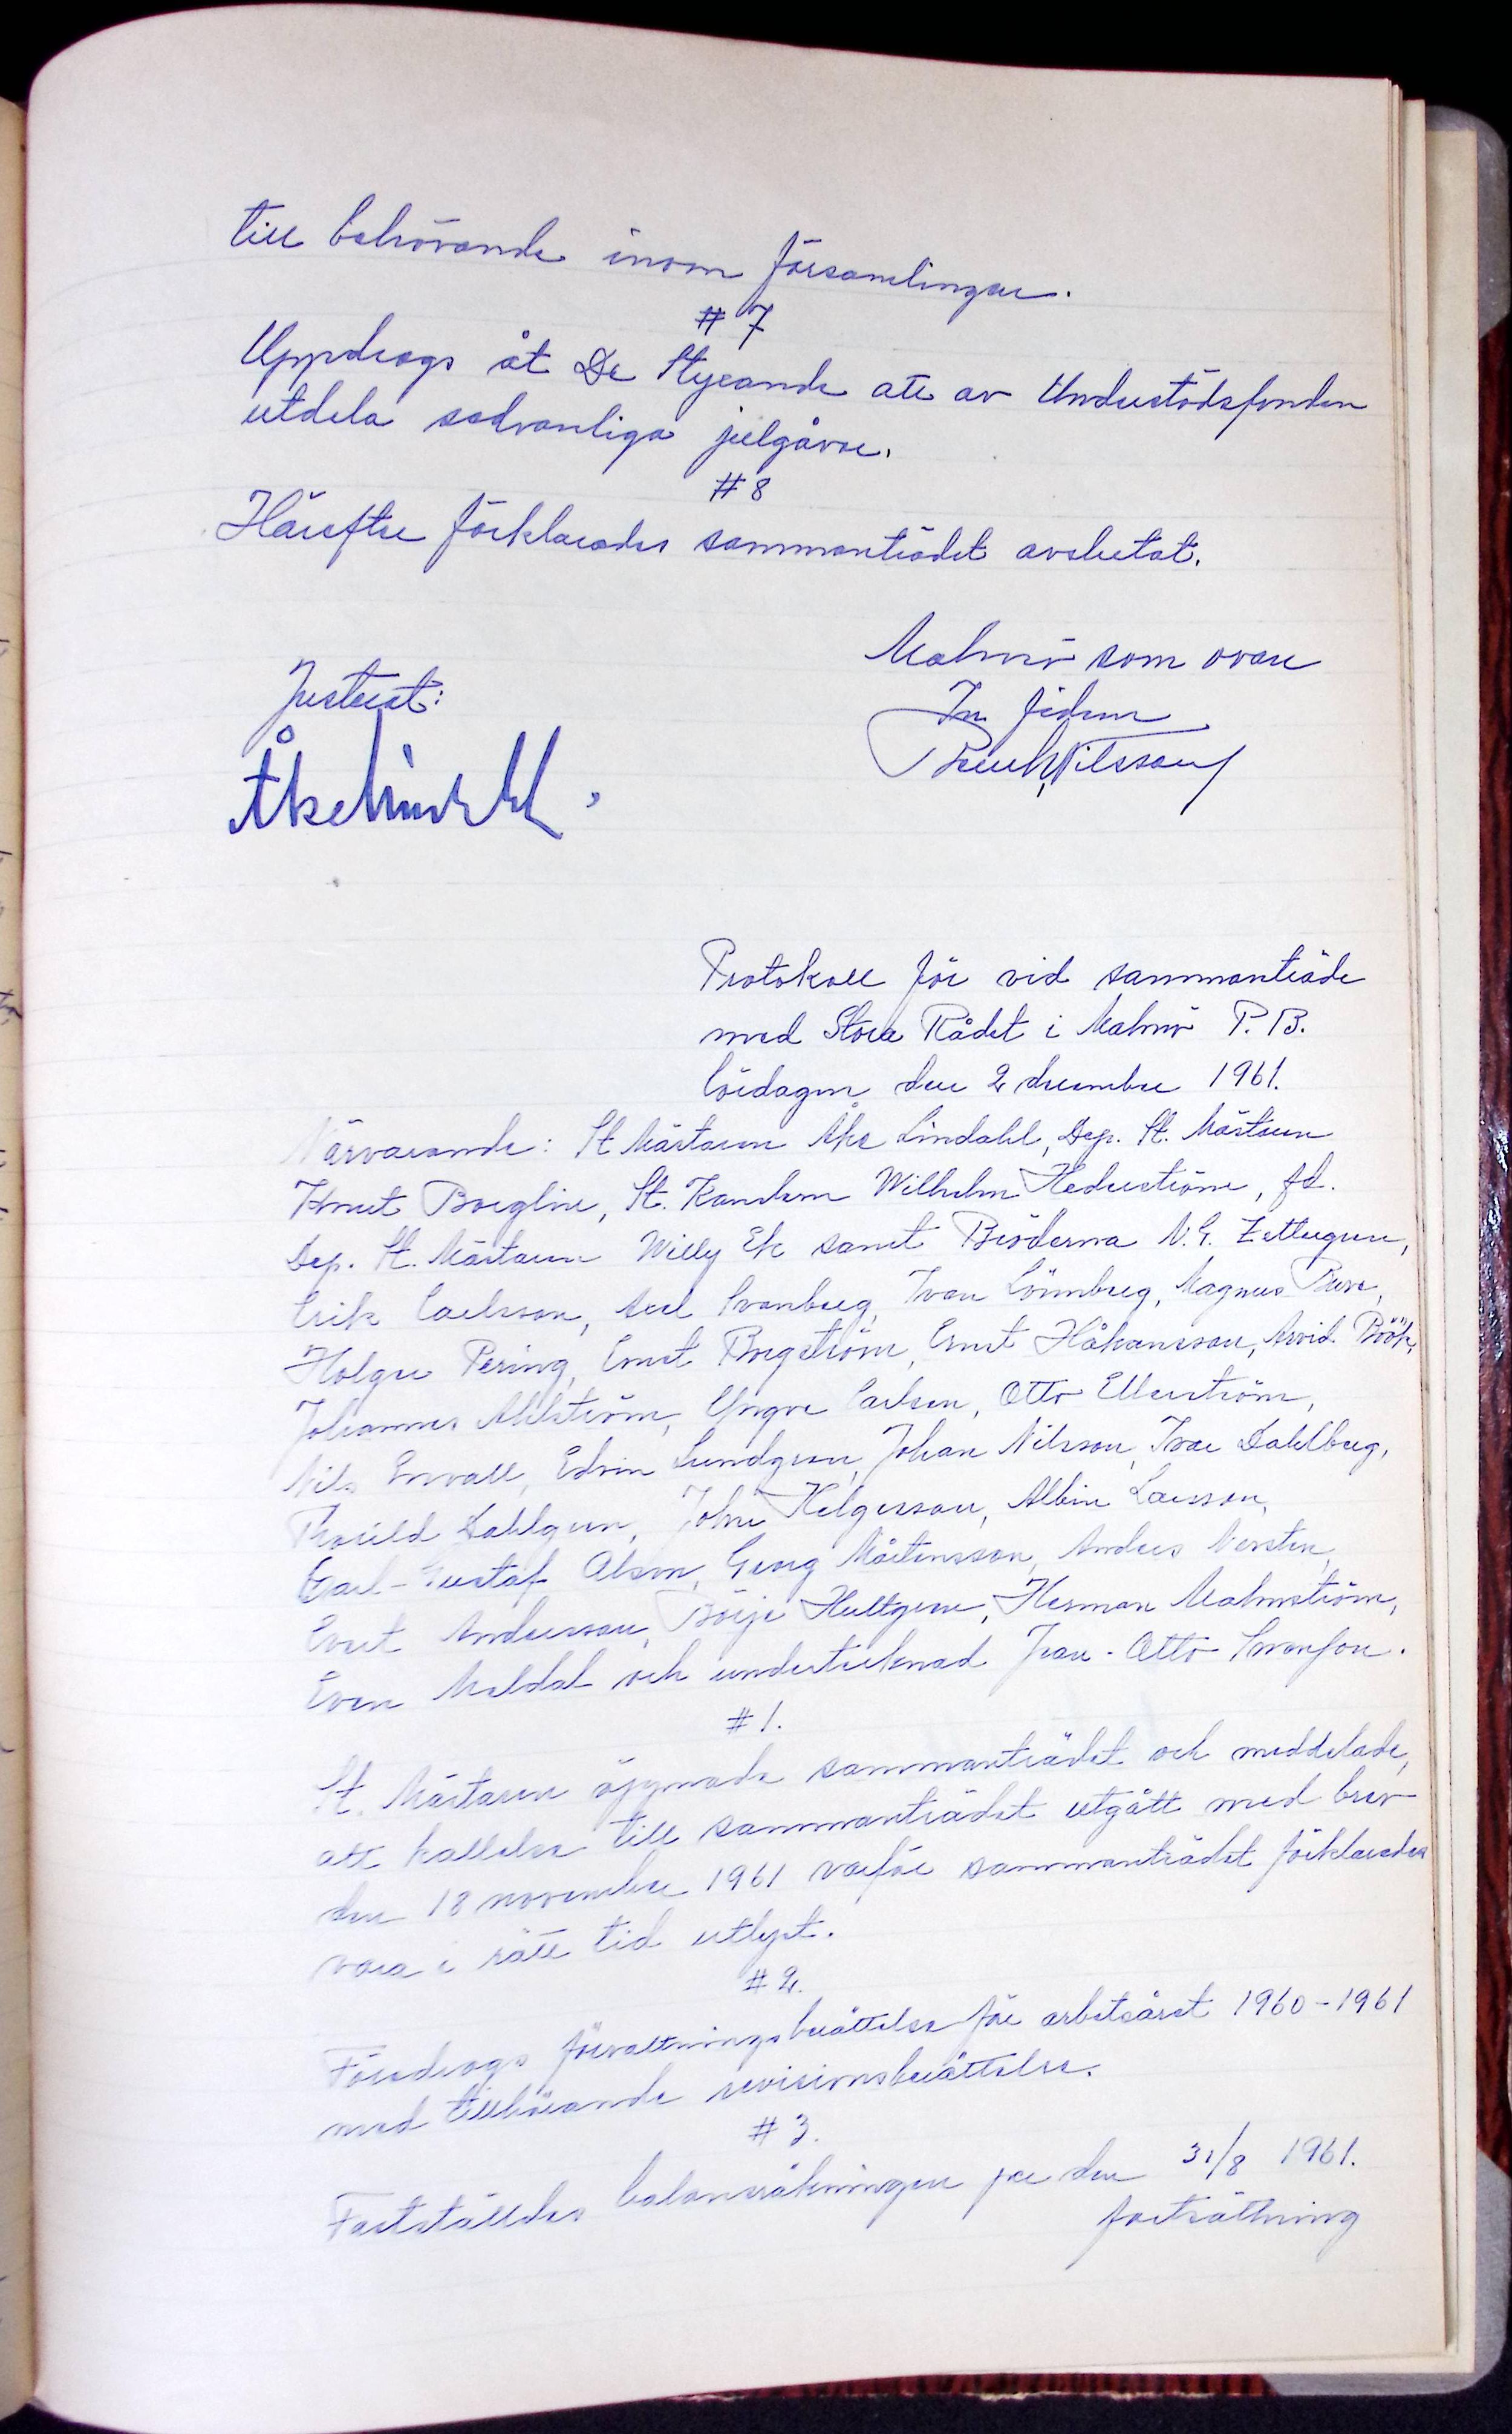 till behövande inom församlingar.
# 7
Uppdrogs åt De Styrande att av Understödsfonden
utdela sedvanliga julgåvor.
# 8
Härefter förklarades sammanträdet avslutat.
Malmö som ovan
In fidem
Justerat:
Protokoll för vid sammanträde
med Stora Rådet i Malmö P. B.
lördagen den 2 december 1961.
Närvarande: St Mästaren Åke Lindahl, Dep. St. Mästaren
Knut Borglin, St. Kanslern Wilhelm Hederström, fd.
Dep. St. Mästaren Willy Ek samt Bröderna N. G. Zettergren,
Erik Carlsson, Axel Svanberg, Ivan Lönnberg, Magnus
Holger Pering, Ernst Borgström, Ernst Håkansson, Arvid Böök,
Johannes Ahlström, Yngve Carlsen, Otto Ellerström,
Nils Envall, Edvin Lundgren, Johan Nilsson, Ivar Dahlberg,
Thorild Dahlgren, John Helgesson, Albin Larsson,
Carl-Gustaf Olson, Georg Mårtensson, Anders
Evert Andersson, Börje Hultgren, Herman Malmström,
Even Meldal och undertecknad Jean-Otto
# 1.
St. Mästaren öppnade sammanträdet och meddelade,
att kallelse till sammanträdet utgått med brev
den 18 november 1961 varför sammanträdet förklarades
vara i rätt tid utlyst.
# 2.
Föredrogs förvaltningsberättelse för arbetsåret 1960-1961
med tillhörande revisionsberättelse.
# 3.
Fastställdes balansräkningen per den 31/8 1961.
fortsättning